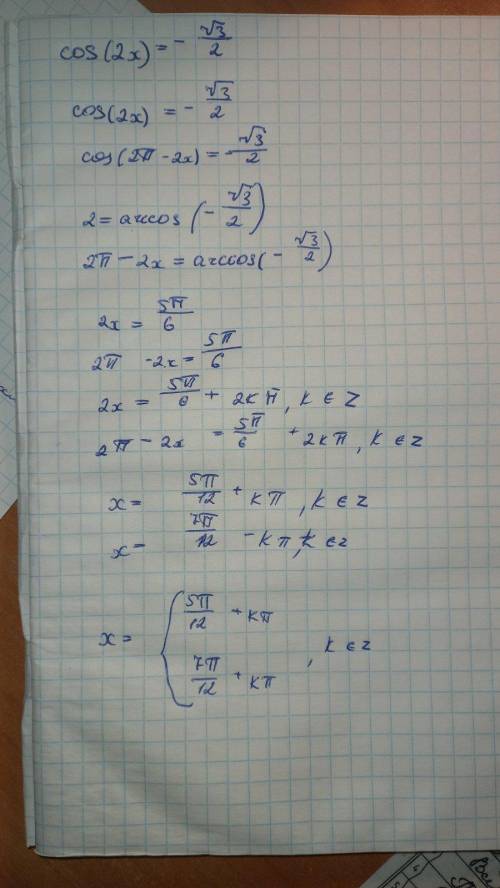 cos(2x) = - √3/2
cos(2x) = - √3/2
cos(2π - 2x) = - √3/2
2 = arccos (- √3/2)
2π - 2x = arccos(- √3/2)
2x = 5π/6
2π - 2x = 5π/6
2x = 5π/6 + 2kπ, k ∈ Z
2π - 2x = 5π/6 + 2kπ, k ∈ Z
x = 5π/12 + kπ, k ∈ Z
x = 7π/12 - kπ, k ∈ Z
x = { 5π/12 + kπ
7π/12 + kπ , k ∈ Z